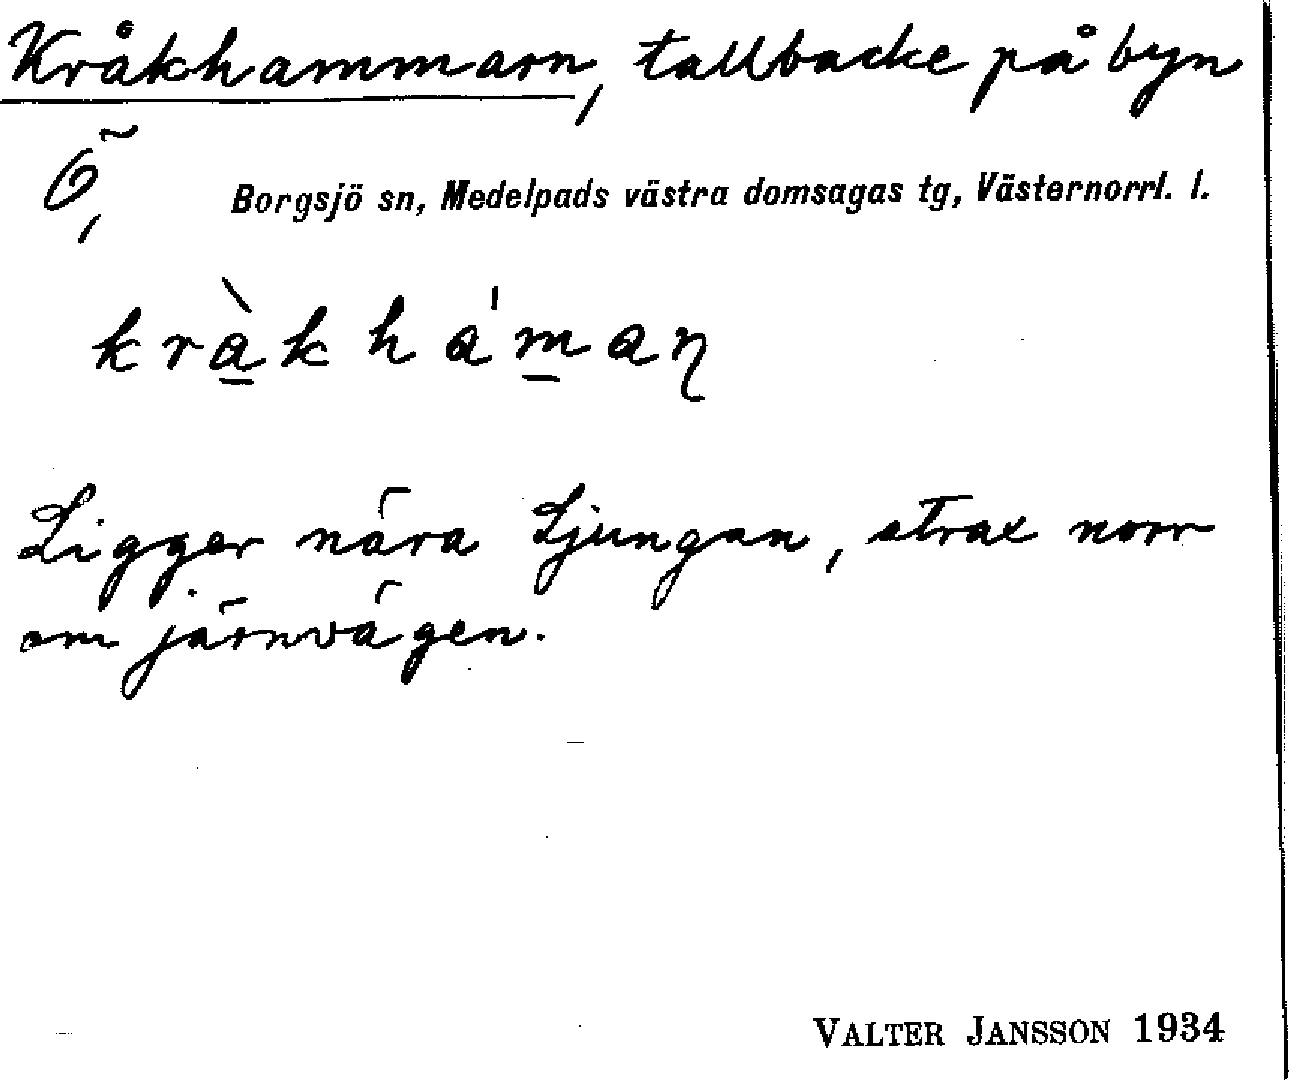 Kråkhammarn, tallbacke på byn
Ö,
Borgsjö sn, Medelpads västra domsagas tg, Västernorrl. l.
kràk háman̩
Ligger nära Ljungan, strax norr
om järnvägen.
VALTER JANSSON 1934